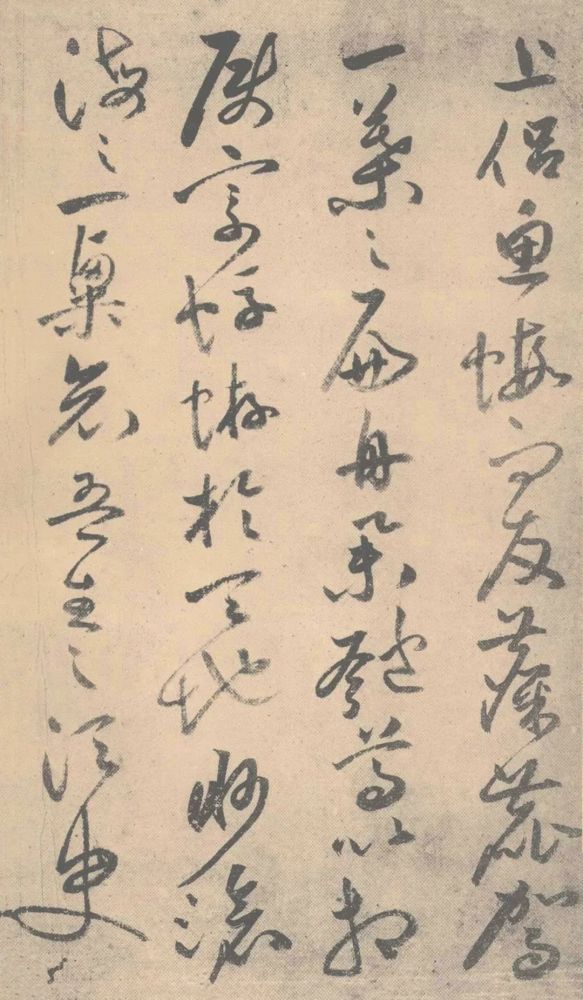 上侶魚蝦而友麋鹿駕
一葉之扁舟舉匏尊以相
屬寄蜉蝣於天地眇滄
海之一粟哀吾生之須臾